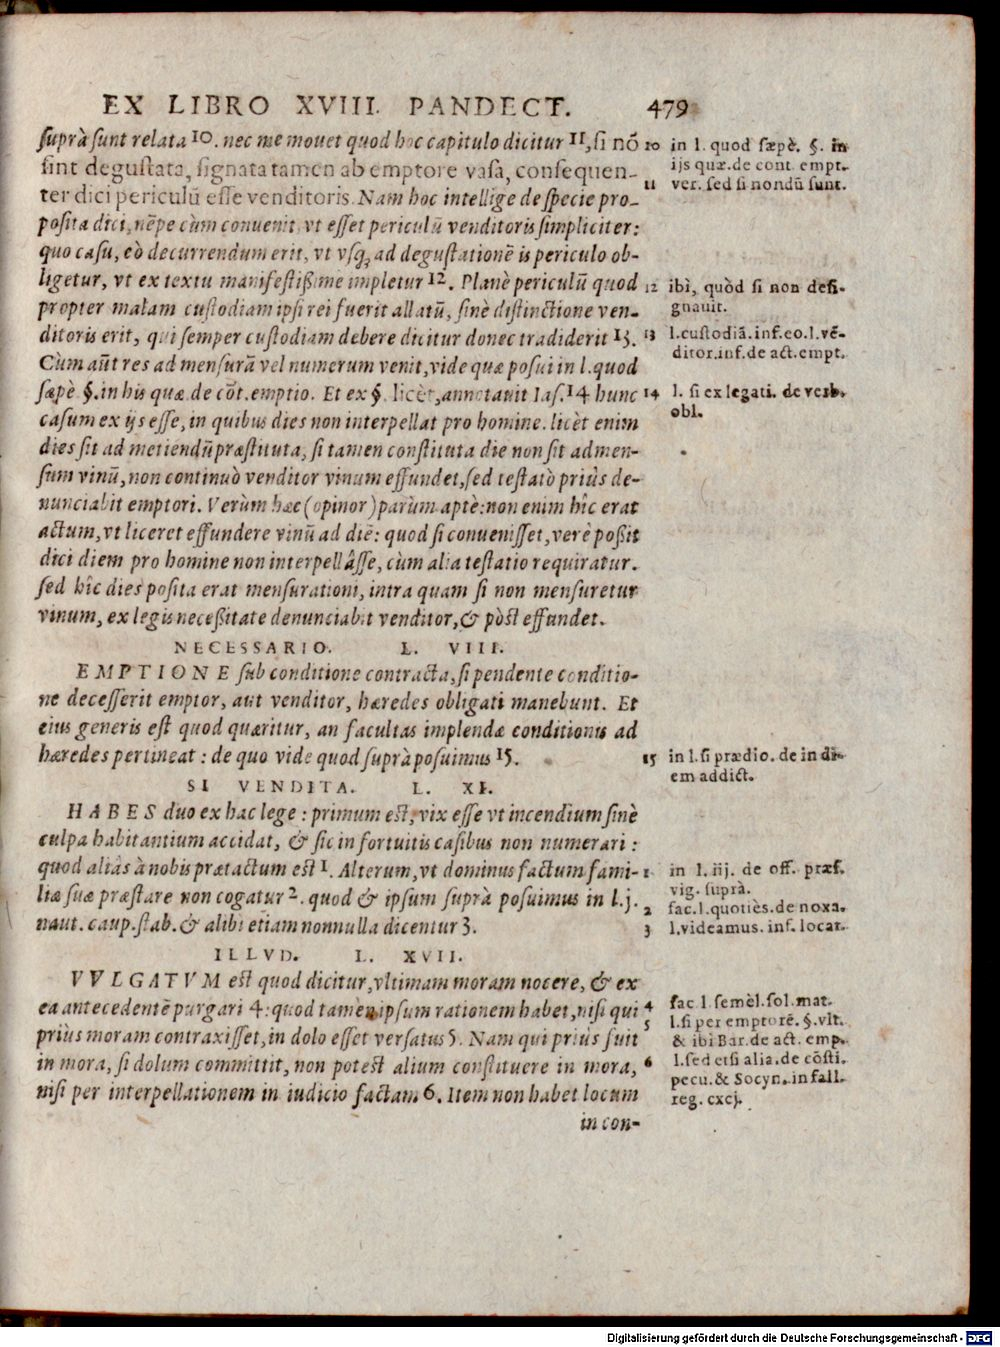 EX LIBRO XVIII. PANDECT. 479
suprà sunt relata 10. nec me mouet quod hoc capitulo dicitur 11, si nō
sint degustata, signata tamen ab emptore vasa, consequen-
ter dici periculū esse venditoris. Nam hoc intellige de specie pro-
posita dici, nēpe cùm conuenit, vt esset periculū venditoris simpliciter:
quo casu, eò decurrendum erit, vt vsq; ad degustationē is periculo ob-
ligetur, vt ex textu manifestißimè impletur 12. Planè periculū quod
propter malam custodiam ipsi rei fuerit allatū, sinè distinctione ven-
ditoris erit, qui semper custodiam debere dicitur donec tradiderit 13.
Cùm aūt res ad mensurā vel numerum venit, vide quæ posui in l. quod
sæpè §. in his quæ de cōt. emptio. Et ex §. licèt, annotauit Ias. 14 hunc
casum ex ijs esse, in quibus dies non interpellat pro homine. licèt enim
dies sit ad metiendū præstituta, si tamen constituta die non sit admen-
sum vinū, non continuò venditor vinum effundet, sed testatò priùs de-
nunciabit emptori. Verùm hæc (opinor) parùm aptè: non enim hîc erat
actum, vt liceret effundere vinū ad diē: quod si conuenisset, verè poßit
dici diem pro homine non interpellâsse, cùm alia testatio requiratur.
sed hîc dies posita erat mensurationi, intra quam si non mensuretur
vinum, ex legis neceßitate denunciabit venditor, & pòst effundet.
NECESSARIO. L. VIII.
EMPTIONE sub conditione contracta, si pendente conditio-
ne decesserit emptor, aut venditor, hæredes obligati manebunt. Et
eius generis est quod quæritur, an facultas implendæ conditionis ad
hæredes pertineat: de quo vide quod suprà posuimus 15.
SI VENDITA. L. XI.
HABES duo ex hac lege: primum est, vix esse vt incendium sinè
culpa habitantium accidat, & sic in fortuitis casibus non numerari:
quod aliàs à nobis prætactum est 1. Alterum, vt dominus factum fami-
liæ suæ præstare non cogatur 2. quod & ipsum suprà posuimus in l. j.
naut. caup. stab. & alibi etiam nonnulla dicentur 3.
ILLVD. L. XVII.
VVLGATVM est quod dicitur, vltimam moram nocere, & ex
ea antecedentē purgari 4: quod tamèn ipsum rationem habet, nisi qui
priùs moram contraxisset, in dolo esset versatus 5. Nam qui priùs fuit
in mora, si dolum committit, non potest alium constituere in mora,
nisi per interpellationem in iudicio factam 6. Item non habet locum
in con-
10 in l. quod sæpè. §. in
ijs quæ. de cont. empt.
11 ver. sed si nondū sunt.
12 ibì, quòd si non desi-
gnauit.
13 l. custodiā. inf. eo. l. vē-
ditor. inf. de act. empt.
14 l. si ex legati. de verb.
obl.
15 in l. si prædio. de in di-
em addict.
1 in l. iij. de off. præf.
vig. suprà.
2 fac. l. quotiès. de noxa.
3 l. videamus. inf. locat.
4 fac. l. semèl. sol. mat.
5 l. si per emptorē. §. vlt.
& ibi Bar. de act. emp.
6 l. sed etsi alia. de cōsti.
pecu. & Socyn. in fall.
reg. cxcj.
Digitalisierung gefördert durch die Deutsche Forschungsgemeinschaft - DFG